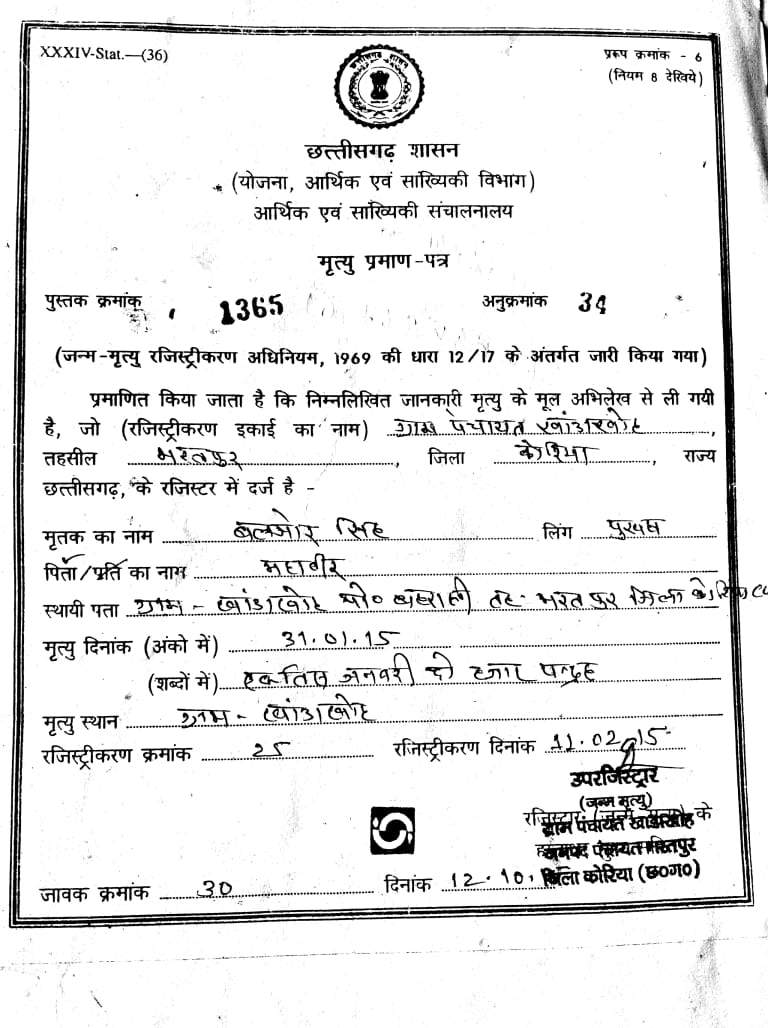 XXXIV-Stat.—(36)
प्ररूप क्रमांक - 6
(नियम 8 देखिये)
छत्तीसगढ़ शासन
छत्तीसगढ़ शासन
(योजना, आर्थिक एवं सांख्यिकी विभाग)
आर्थिक एवं सांख्यिकी संचालनालय
मृत्यु प्रमाण-पत्र
पुस्तक क्रमांक 1365 अनुक्रमांक 34
(जन्म-मृत्यु रजिस्ट्रीकरण अधिनियम, 1969 की धारा 12/17 के अंतर्गत जारी किया गया)
प्रमाणित किया जाता है कि निम्नलिखित जानकारी मृत्यु के मूल अभिलेख से ली गयी
है, जो (रजिस्ट्रीकरण इकाई का नाम) ग्राम पंचायत खांडाखोह,
तहसील भरतपुर, जिला कोरिया, राज्य
छत्तीसगढ़, के रजिस्टर में दर्ज है -
मृतक का नाम बलजोर सिंह लिंग पुरुष
पिता/पति का नाम महावीर
स्थायी पता ग्राम - खांडाखोह पो० तह- भरतपुर जिला कोरिया
मृत्यु दिनांक (अंको में) 31.01.15
(शब्दों में) एकतिस जनवरी दो हजार पन्द्रह
मृत्यु स्थान ग्राम - खांडाखोह
रजिस्ट्रीकरण क्रमांक 25 रजिस्ट्रीकरण दिनांक 11.02.15
उपरजिस्ट्रार
(जन्म मृत्यु)
रजिस्ट्रार (जन्म मृत्यु) के
ग्राम पंचायत खाडाखोह
जनपद पंचायत भरतपुर
जिला कोरिया (छ०ग०)
जावक क्रमांक 30 दिनांक 12.10.